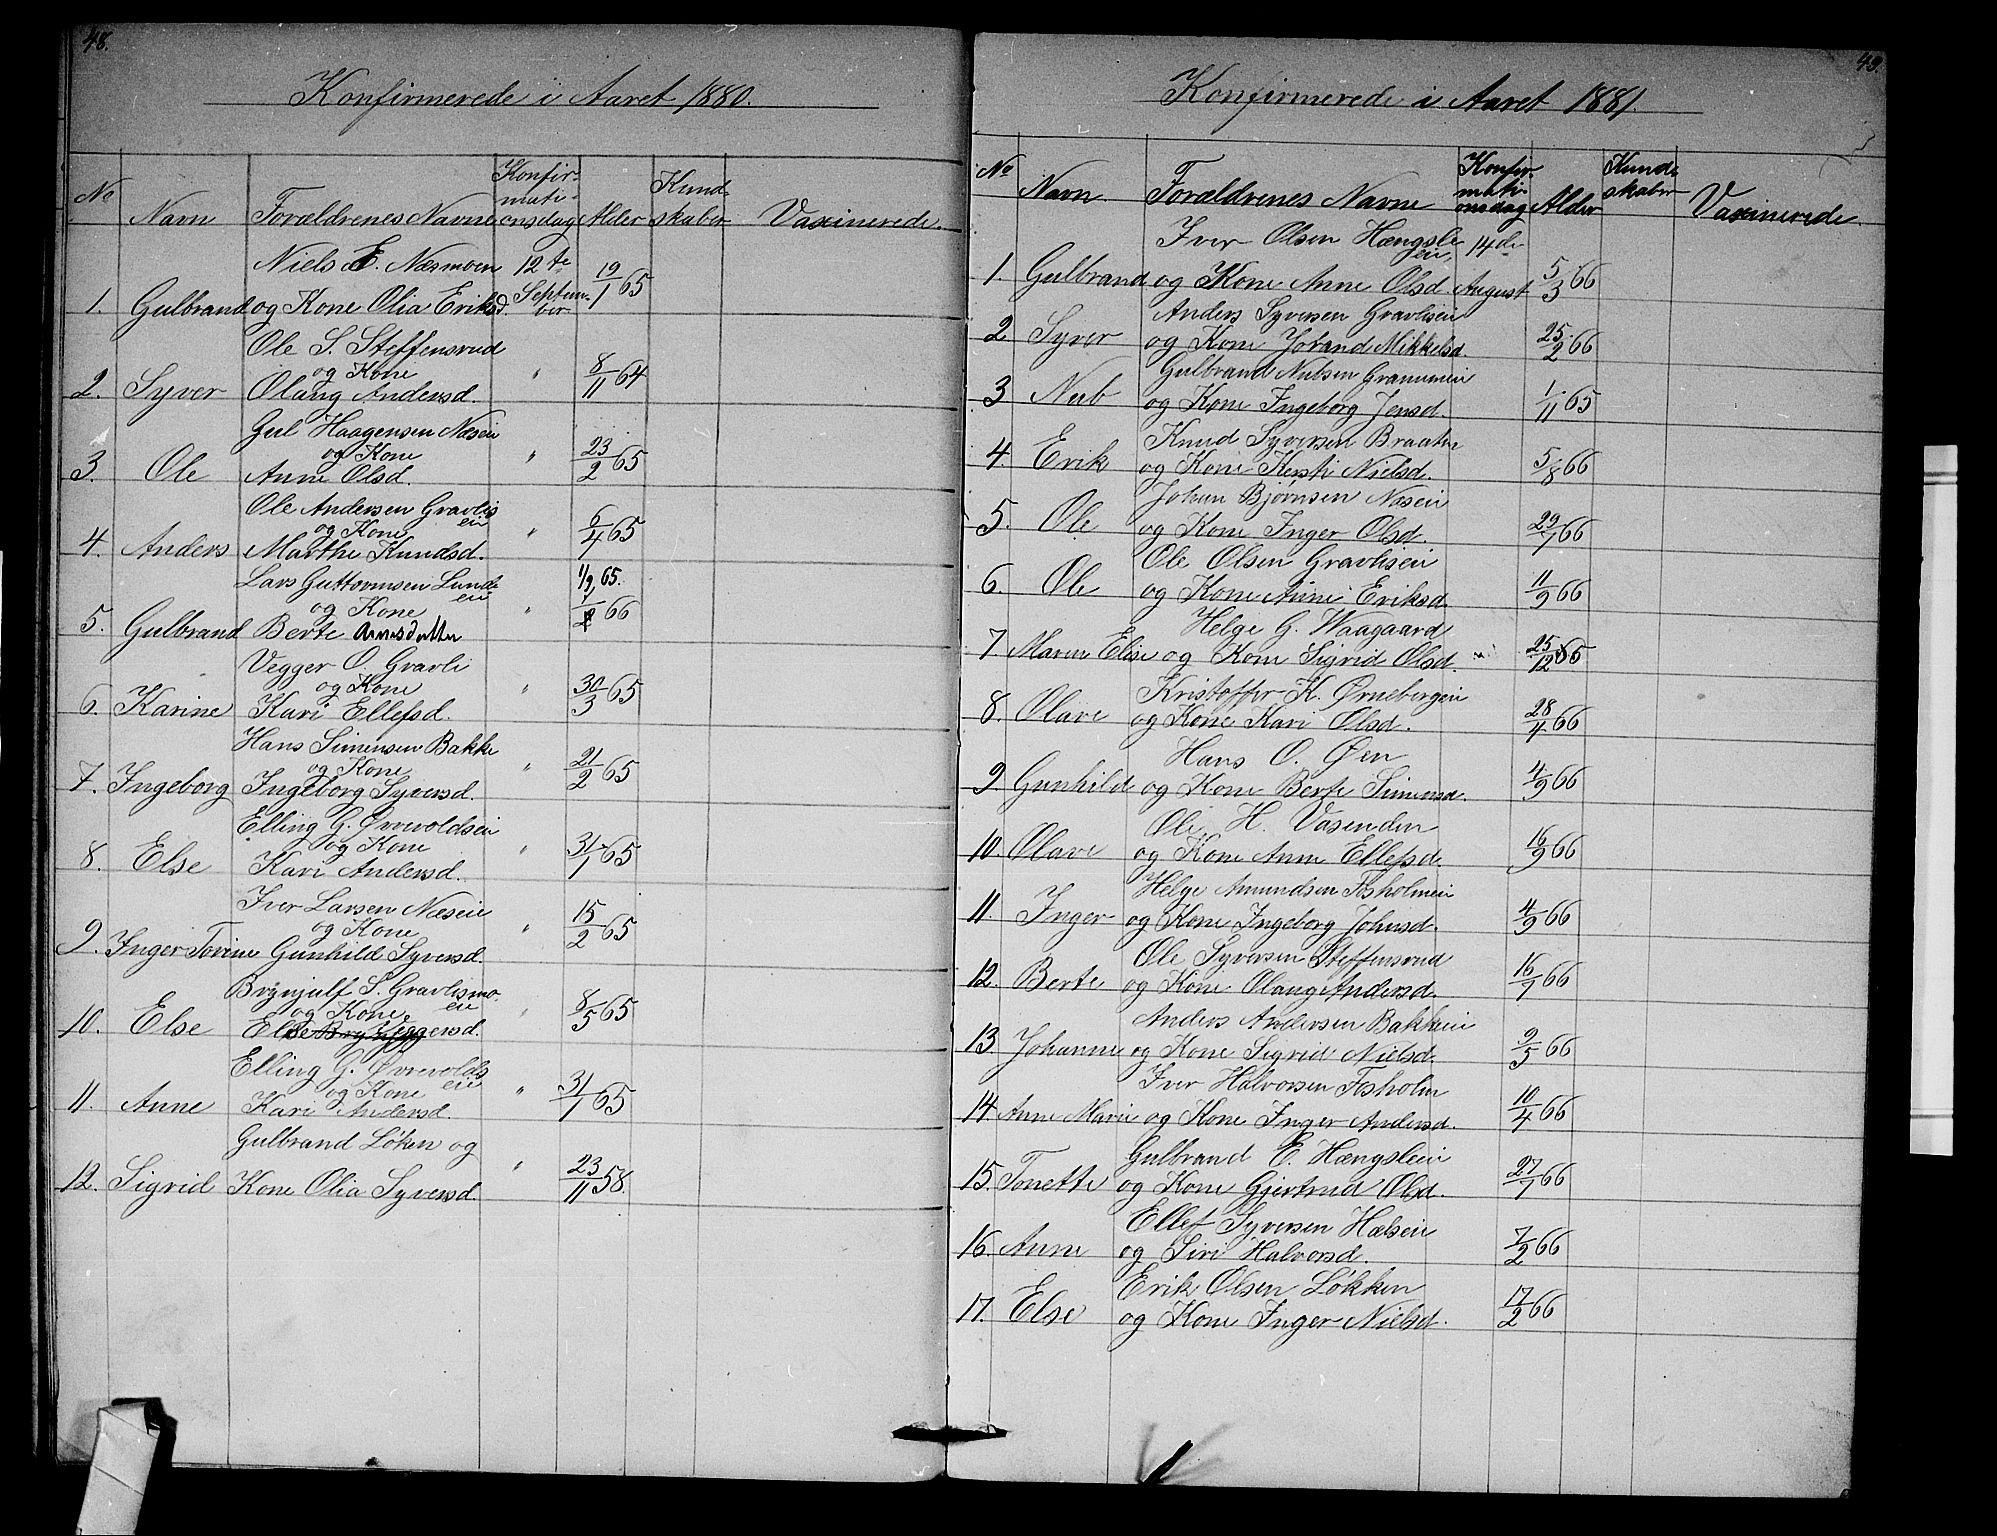 48.
Konfirmerede i Aaret 1880.
No Navn Forældrenes Navne Konfirmati-onsdag Alder Kund-skaber Vaxinerede.
Niels E. Næsmoen 12te
1. Gulbrand og Kone Olia Eriksd. Septem-ber 19/1 65
Ole S. Steffensrud
og Kone
2. Syver Olaug Andersd. " 8/11 64
Gul Haagensen Næseie
og Kone
3. Ole Anne Olsd. " 23/2 65
Ole Andersen Gravlis
eie
og Kone
4. Anders Marthe Knudsd. " 6/4 65
Lars Guttormsen Lunde
eie 1/9 65.
og Kone
5. Gulbrand Berte Arnesdatter " 66
Vegger O. Gravli
og Kone
6. Karine Kari Ellefsd. " 30/3 65
Hans Simensen Bakke
og Kone
7. Ingeborg Ingeborg Syversd. " 21/2 65
Elling G. Øvrevoldseie
og Kone
8. Else Kari Andersd. " 31/1 65
Iver Larsen Næseie
og Kone
9. Inger Torine Gunhild Syversd. " 15/2 65
Brynjulf S. Gravlismo-
eie
og Kone
10. Else Else Veggersd. " 8/5 65
Elling G. Øvrevolds
eie
og Kone
11. Anne Kari Andersd. " 31/1 65
Gulbrand Løken og
12. Sigrid Kone Olia Syversd. " 23/11 58.
49.
Konfirmerede i Aaret 1881.
No Navn Forældrenes Navne Konfir-mati-onsdag Alder Kund-skaber Vaxinerede.
Iver Olsen Hængsle
eie 14de
1. Gulbrand og Kone Anne Olsd August 5/3 66
Anders Syversen Gravliseie
2. Syver og Kone Jørand Mikkelsd. 25/2 66
Gulbrand Nubsen Granumeie
3 Nub og Kone Ingeborg Jensd. 1/11 65
Knud Syversen Braaten
4. Erik og Kone Kersti Nielsd. 5/8 66
Johan Bjørnsen Næseie
5. Ole og Kone Inger Olsd. 29/1 66
Ole Olsen Gravliseie
6. Ole og Kone Anne Eriksd. 11/9 66
Helge G. Waagaard
7. Maren Elise og Kone Sigrid Olsd. 25/12 65
Kristoffer K. Ørnebergeie
8. Olave og Kone Kari Olsd. 28/4 66
Hans O. Øen
9. Gunhild og Kone Berte Simensd. 4/9 66
Ole H. Vasenden
10. Olave og Kone Anne Ellefsd. 16/9 66
Helge Amundsen Fosholmeie
11. Inger og Kone Ingeborg Johnsd. 4/9 66
Ole Syversen Steffensrud
12. Berte og Kone Olaug Andersd. 16/1 66
Anders Andersen Bakkeeie
13. Johanne og Kone Sigrid Nielsd. 9/5 66
Iver Halvorsen Fosholm
14. Anne Marie og Kone Inger Andersd. 10/4 66
Gulbrand E. Hængsleie
15. Tonette og Kone Gjertrud Olsd. 27/1 66
Ellef Syversen Hælseie
16. Anne og Siri Halvorsd. 7/2 66
Erik Olsen Løkken
17. Else og Kone Inger Nielsd. 17/2 66